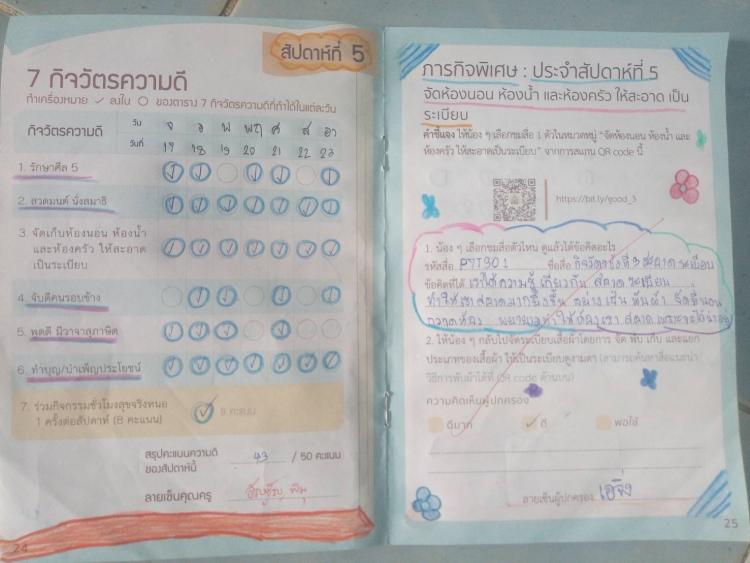 สัปดาห์ที่ 5
7 กิจวัตรความดี
ทำเครื่องหมาย ✓ ลงใน ○ ของตาราง 7 กิจวัตรความดีที่ทำได้ในแต่ละวัน
กิจวัตรความดี วัน จ อ พ พฤ ศ ส อา
วันที่ 17 18 19 20 21 22 23
1. รักษาศีล 5
2. สวดมนต์ นั่งสมาธิ
3. จัดเก็บห้องนอน ห้องน้ำ
และห้องครัว ให้สะอาด
เป็นระเบียบ
4. จับดีคนรอบข้าง
5. พูดดี มีวาจาสุภาษิต
6. ทำบุญ/บำเพ็ญประโยชน์
7. ร่วมกิจกรรมชั่วโมงสุขจริงหนอ
1 ครั้งต่อสัปดาห์ (8 คะแนน)
8 คะแนน
สรุปคะแนนความดี
ของสัปดาห์นี้ 43 / 50 คะแนน
ลายเซ็นคุณครู
24
ภารกิจพิเศษ : ประจำสัปดาห์ที่ 5
จัดห้องนอน ห้องน้ำ และห้องครัว ให้สะอาด เป็น
ระเบียบ
คำชี้แจง ให้น้อง ๆ เลือกชมสื่อ 1 ตัวในหมวดหมู่ "จัดห้องนอน ห้องน้ำ และ
ห้องครัว ให้สะอาดเป็นระเบียบ" จากการสแกน QR code นี้
https://bit.ly/good_3
1. น้อง ๆ เลือกชมสื่อตัวไหน ดูแล้วได้ข้อคิดอะไร
รหัสสื่อ PYT301 ชื่อสื่อ กิจวัตรข้อที่ 3 สะอาด ระเบียบ
ข้อคิดที่ได้ เราได้ความรู้ เกี่ยวกับ สะอาด ระเบียบ
ทำให้เราสะอาดมากยิ่งขึ้น อย่างเช่น พับผ้า จัดที่นอน
กวาดห้อง พยายามทำให้ห้องเรา สะอาด
2. ให้น้อง ๆ กลับไปจัดระเบียบเสื้อผ้าโดยการ จัด พับ เก็บ และแยก
ประเภทของเสื้อผ้า ให้เป็นระเบียบดูงามตา (สามารถค้นหาสื่อแนะนำ
วิธีการพับผ้าได้ที่ QR code ด้านบน)
ความคิดเห็นผู้ปกครอง
ดีมาก ดี พอใช้
ลายเซ็นผู้ปกครอง
25